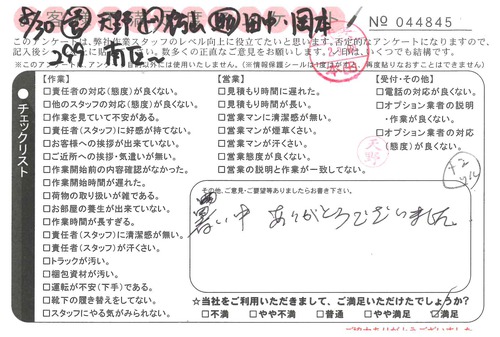 № 044845
このアンケートは、弊社作業スタッフのレベル向上に役立てたいと思います。否定的なアンケートになりますので、
チェックリスト
【作業】
□責任者の対応(態度)が良くない。
□他のスタッフの対応(態度)が良くない。
□作業を見ていて不安がある。
□責任者(スタッフ)に好感が持てない。
□お客様への挨拶が出来ていない。
□ご近所への挨拶・気遣いが無い。
□作業開始前の内容確認がなかった。
□作業開始時間が遅れた。
□荷物の取り扱いが雑である。
□お部屋の養生が出来ていない。
□作業時間が長すぎる。
□責任者(スタッフ)に清潔感が無い。
□責任者(スタッフ)が汗くさい。
□トラックが汚い。
□梱包資材が汚い。
□運転が不安(下手)である。
□靴下の履き替えをしてない。
□スタッフにやる気がみられない。
【営業】
□見積もり時間に遅れた。
□見積もり時間が長い。
□営業マンに清潔感が無い。
□営業マンが煙草くさい。
□営業マンが汗くさい。
□営業態度が良くない。
□営業の説明と作業が一致してない。
【受付・その他】
□電話の対応が良くない。
□オプション業者の説明
・作業が良くない。
□オプション業者の対応
(態度)が良くない。
天野
その他、ご意見・ご要望等ありましたらお書き下さい。
暑い中 ありがとうございました。
☆当社をご利用いただきまして、ご満足いただけたでしょうか?
□不満 □やや不満 □普通 □やや満足 □満足
ご協力ありがとうございました